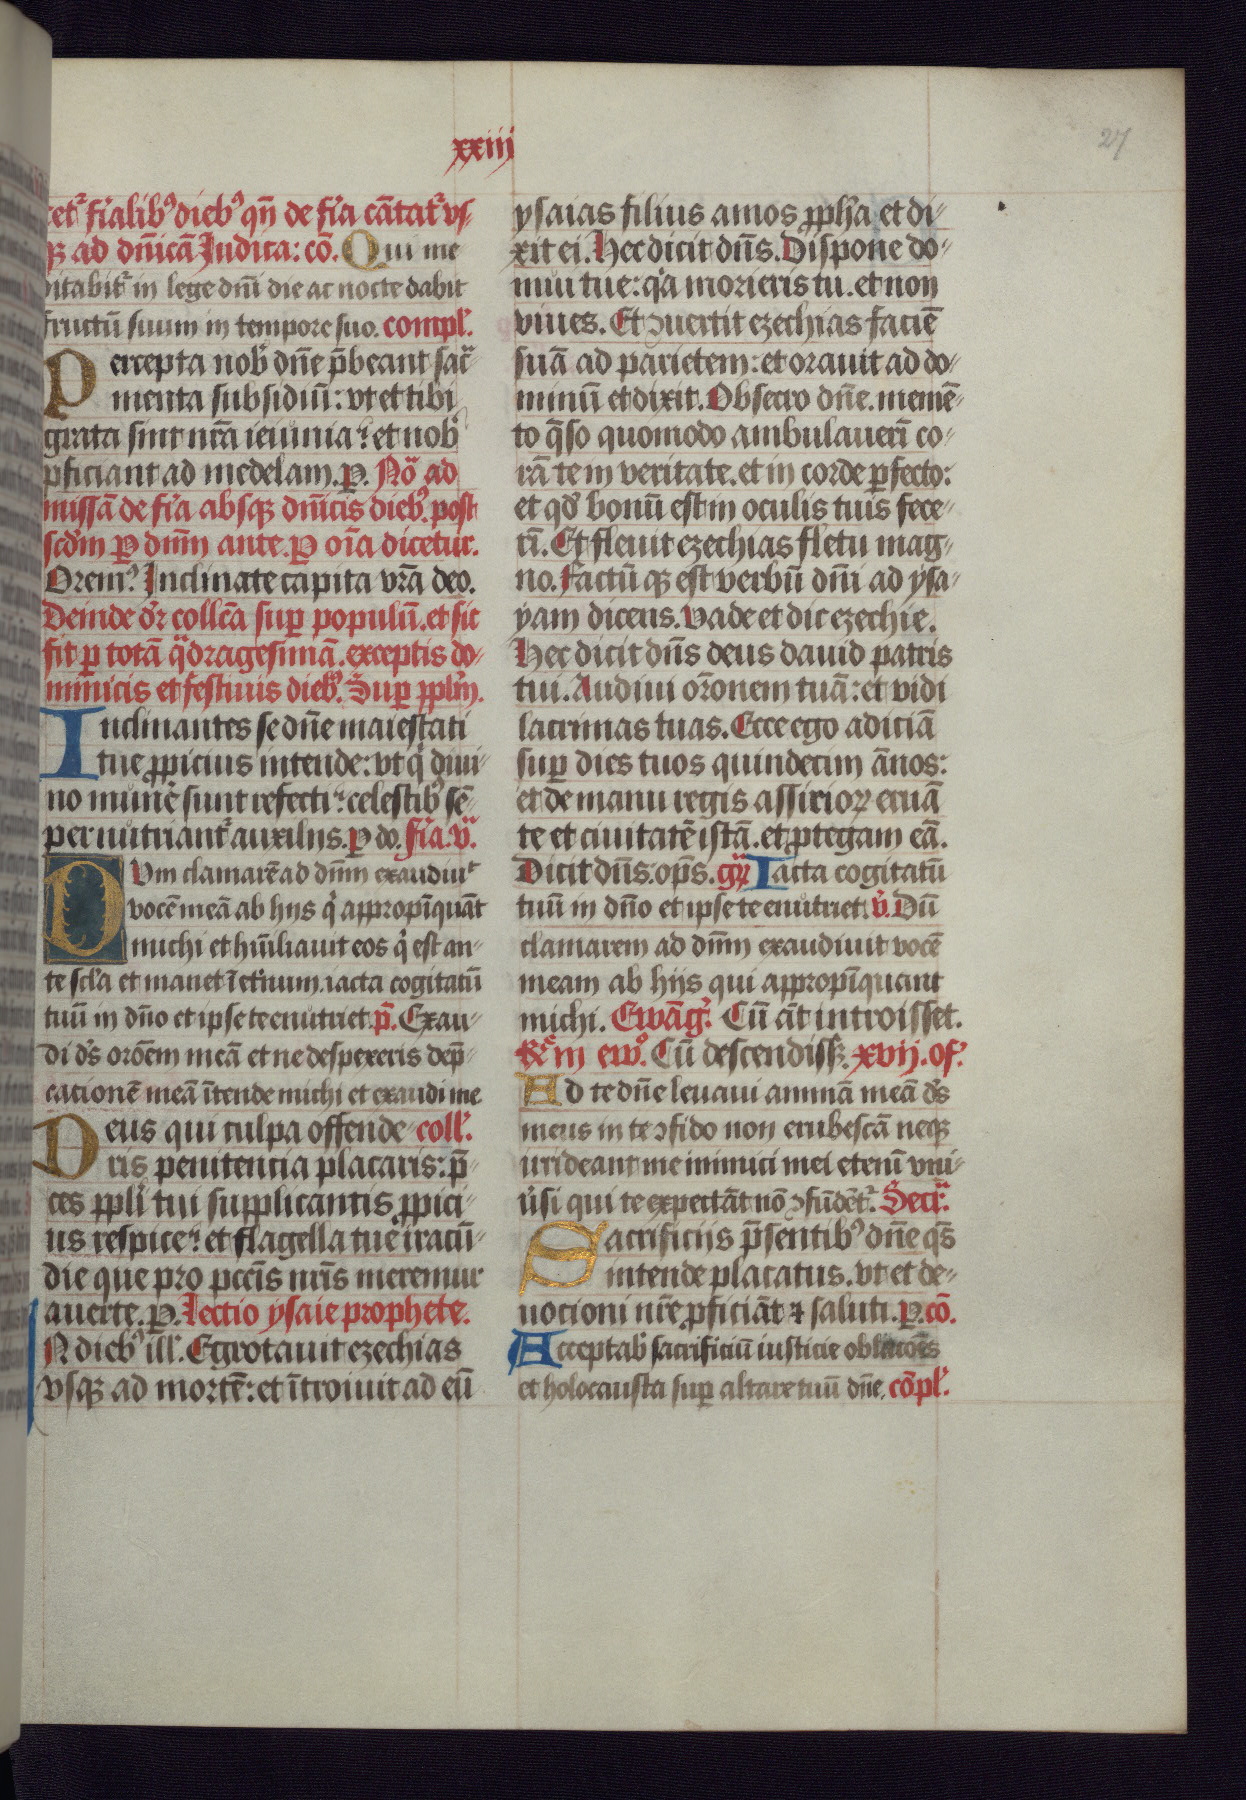 xxiij
27
tet᷑ fīalib᷒ dieb᷒ qn̄ de fīa cātat᷑ vs
qꝫ ad dn̄icā Judica: cō. Qui me
ditabit᷑ in lege dn̄i die ac nocte dabit
fructū suum in tempore suo. compl᷒.
Percepta nob᷒ dn̄e p̄beant sac̄
menta subsidiū: vt et tibi
grata sint nr̄a ieiunia: et nob᷒
ꝓficiant ad medelam. ꝑ. No᷒ ad
missā de fīa absqꝫ dn̄icis dieb᷒. post
scd̄m ꝑ dn̄m ante. ꝑ oīa dicetur.
Orem᷒. Inclinate capita vr̄a deo.
Deinde dr̄ collc̄a suꝑ populū. et sic
fit ꝑ totā qͣdragesimā. exceptis do-
minicis et festiuis dieb᷒. Suꝑ pplm̄.
Inclinantes se dn̄e maiestati
tue ꝓpicius intende: vt qͥ diui-
no mune᷒ sunt refecti: celestib᷒ sē-
per nutriant᷑ auxilijs. ꝑ do. fīa. v.
Dvm clamarē ad dn̄m exaudiuit
vocē meā ab hijs qͥ appropīquāt
michi et hūiliauit eos qͥ est an-
te scl̄a et manet ī et᷒num. iacta cogitatū
tuū in dn̄o et ipse te enutriet. p̄. Exau-
di ds̄ orōem meā et ne despexeris dep̄-
cationē meā ītende michi et exaudi me
Deus qui culpa offende- coll᷒.
ris penitencia placaris: p̄-
ces ppli tui supplicantis ꝓpici-
us respice: et flagella tue iracū-
die que pro pccīs nr̄is meremur
auerte. ꝑ. Lectio ysaie prophete.
IN dieb᷒ ill᷒. Egrotauit ezechias
vsqꝫ ad mortē: et ītroiuit ad eū
ysaias filius amos ꝓph̄a et di-
xit ei. Hec dicit dn̄s. Dispone do-
mui tue: qͥa morieris tu. et non
viues. Et ꝯuertit ezechias faciē
suā ad parietem: et orauit ad do-
minū et dixit. Obsecro dn̄e. memē-
to q̄so quomodo ambulauerī co-
rā te in veritate. et in corde ꝑfecto:
et qd᷒ bonū est in oculis tuis fece-
rī. Et fleuit ezechias fletu mag-
no. Factū qꝫ est verbū dn̄i ad ysa-
yam dicens. Vade et dic ezechie.
Hec dicit dn̄s deus dauid patris
tui. Audiui or̄onem tuā: et vidi
lacrimas tuas. Ecce ego adiciā
suꝑ dies tuos quindecim ānos:
et de manu regis assirioꝝ eruā
te et ciuitatē istā. et ꝓtegam eā.
Dicit dn̄s. ops̄. gr᷒ Iacta cogitatū
tuū in dn̄o et ipse te enutriet. v᷒. Dū
clamarem ad dn̄m exaudiuit vocē
meam ab hijs qui appropīquant
michi. Ewāg᷒. Cū āt introisset.
Re᷒ in ew᷒. Cū descendissꝫ. xvij. of᷒.
Ad te dn̄e leuaui animā meā ds̄
meus in te ꝯfido non erubescā neqꝫ
irrideant me inimici mei etenī vni-
u᷒si qui te expectāt nō ꝯfūdēt᷑. Secr᷒.
Sacrificijs p̄sentib᷒ dn̄e qs̄
intende placatus. vt et de-
uocioni nr̄e ꝓficiāt ⁊ saluti. ꝑ. cō.
Acceptab᷒ sacrificiū iusticie oblacōēs
et holocausta suꝑ altare tuū dn̄e. cōpl᷒.